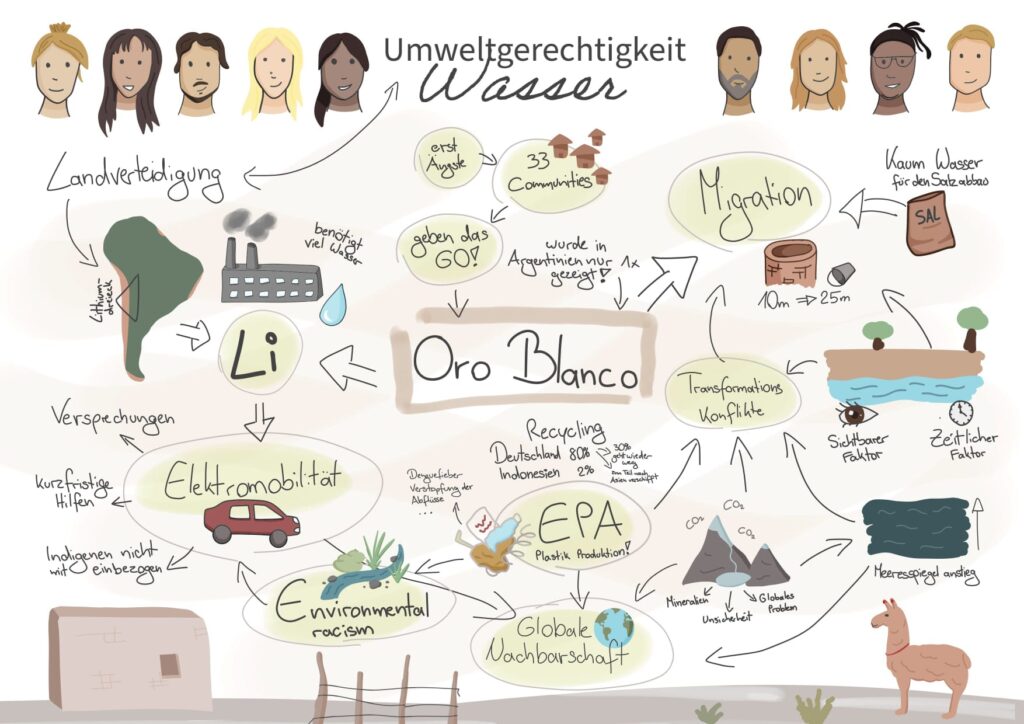 Umweltgerechtigkeit
Wasser
Landverteidigung
erst
Ängste
33
Communities
geben das
GO!
wurde in
Argentinien nur 1x
gezeigt!
Migration
Kaum Wasser
für den Salzabbau
SAL
10m ⇒ 25m
benötigt
viel Wasser
Lithium-
dreieck
Li
Oro Blanco
Transformations
Konflikte
Sichtbarer
Faktor
Zeitlicher
Faktor
Verspechungen
Kurzfristige
Hilfen
Indigenen nicht
mit einbezogen
Elektromobilität
Recycling
Deutschland 80%
Indonesien 2%
30%
geht wieder
weg
zum Teil nach
Asien verschifft
Denguefieber
Verstopfung der
Abflüsse
...
EPA
Plastik Produktion!
CO₂
CO₂
CO₂
Mineralien
Unsicherheit
Globales
Problem
Meeresspiegel anstieg
Environmental
racism
Globale
Nachbarschaft